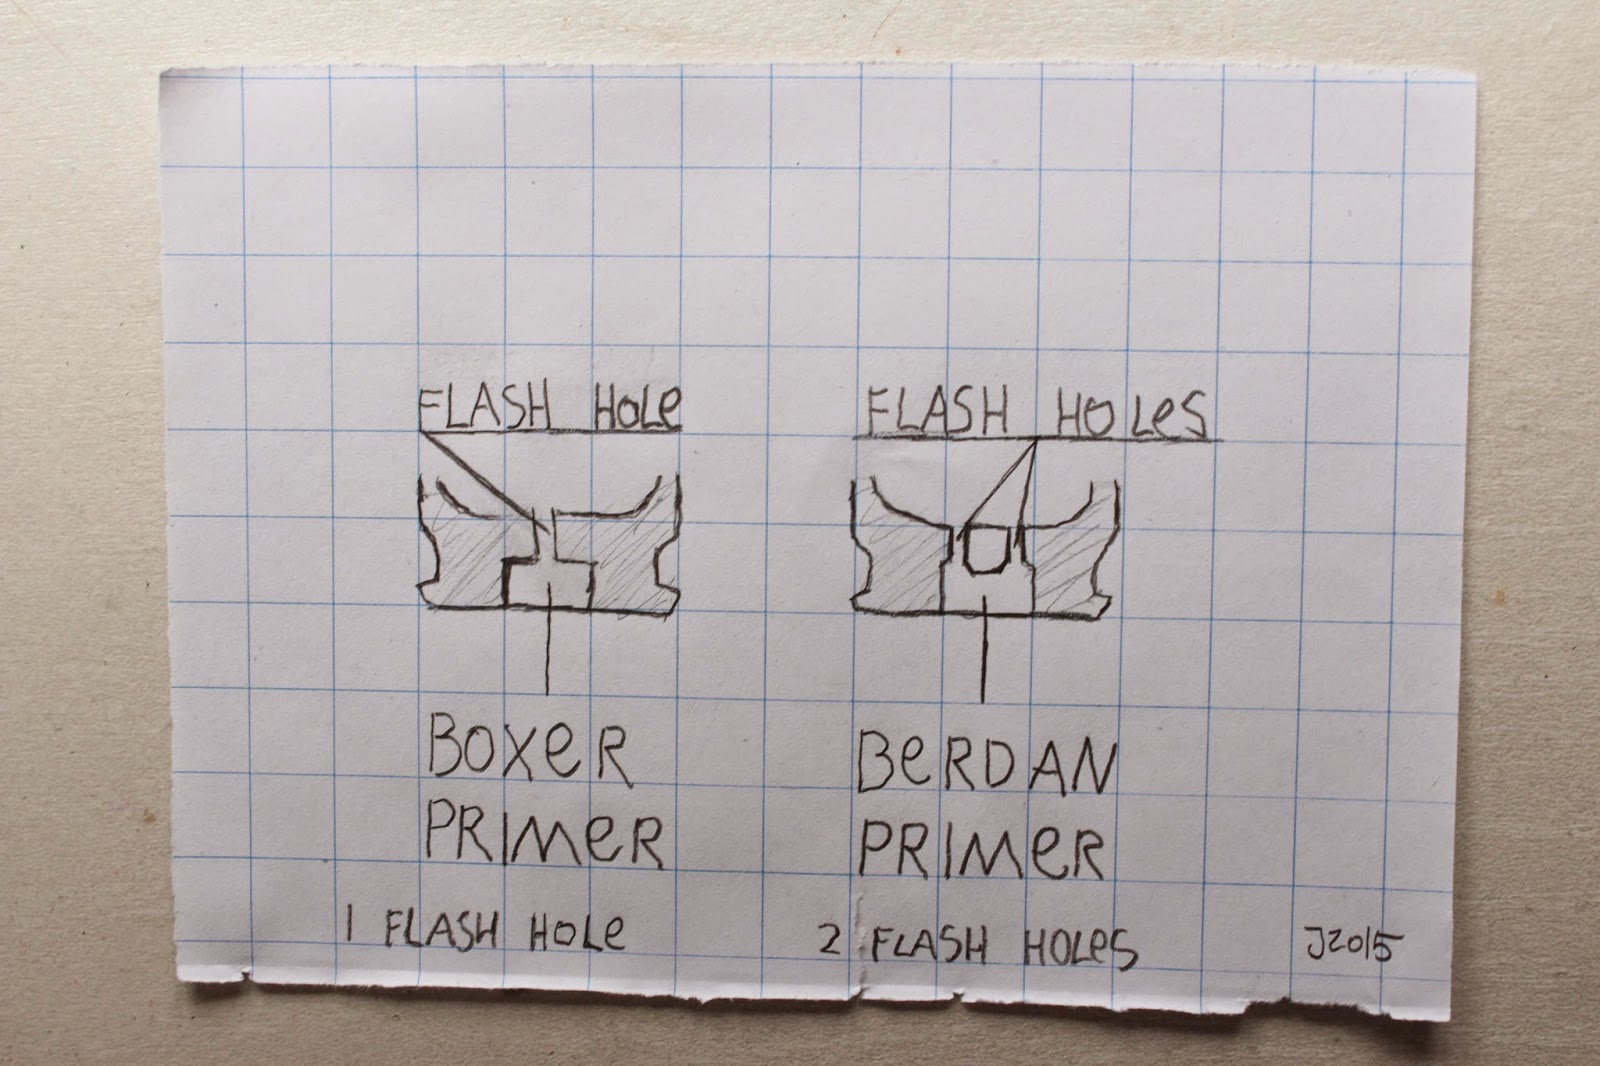 FLASH HOLe
FLASH HOLeS
BOXeR
PRIMeR
1 FLASH HOLe
BeRDAN
PRIMeR
2 FLASH HOLeS
J2015